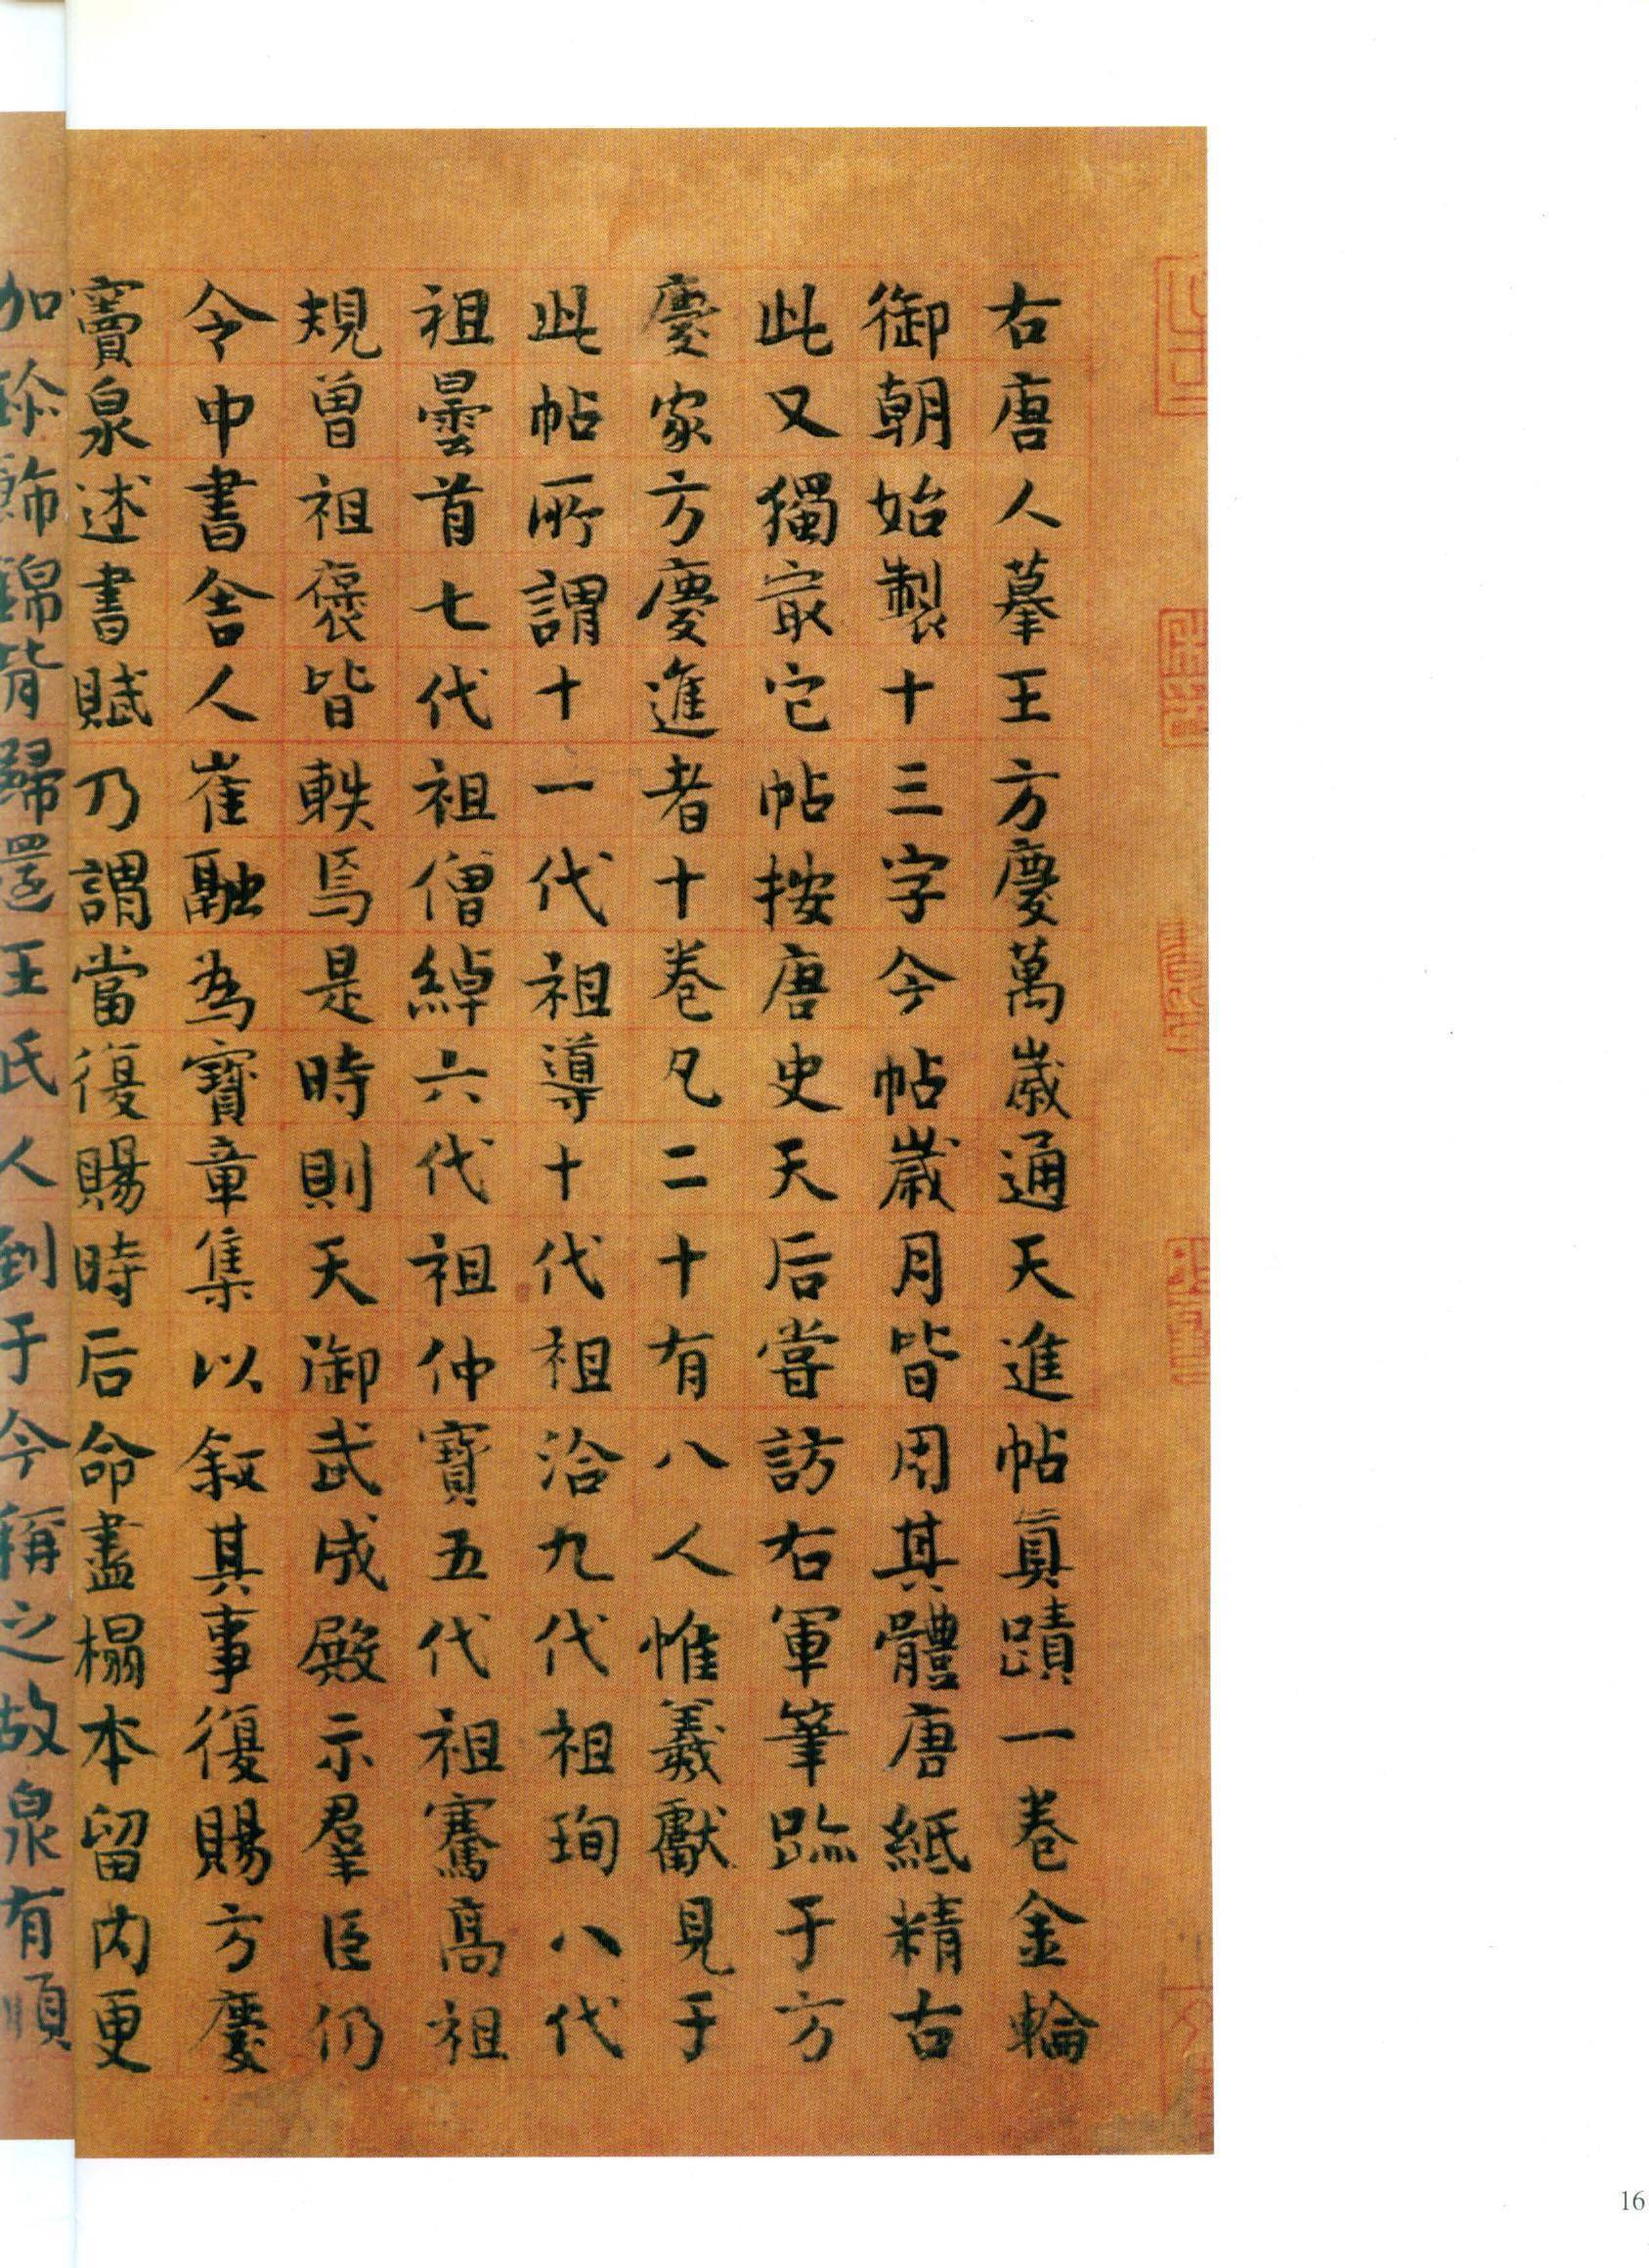 右唐人摹王方慶萬歲通天進帖真蹟一卷金輪
御朝始製十三字今帖歲月皆用其體唐紙精古
此又獨冣它帖按唐史天后嘗訪右軍筆跡于方
慶家方慶進者十卷凡二十有八人惟羲獻見于
此帖所謂十一代祖導十代祖洽九代祖珣八代
祖曇首七代祖僧綽六代祖仲寶五代祖騫高祖
規曾祖褒皆軼焉是時則天御武成殿示羣臣仍
令中書舍人崔融為寶章集以敘其事復賜方慶
竇泉述書賦乃謂當復賜時后命盡榻本留内更
加珎飾錦背歸還王氏人到于今稱之故泉有順
16